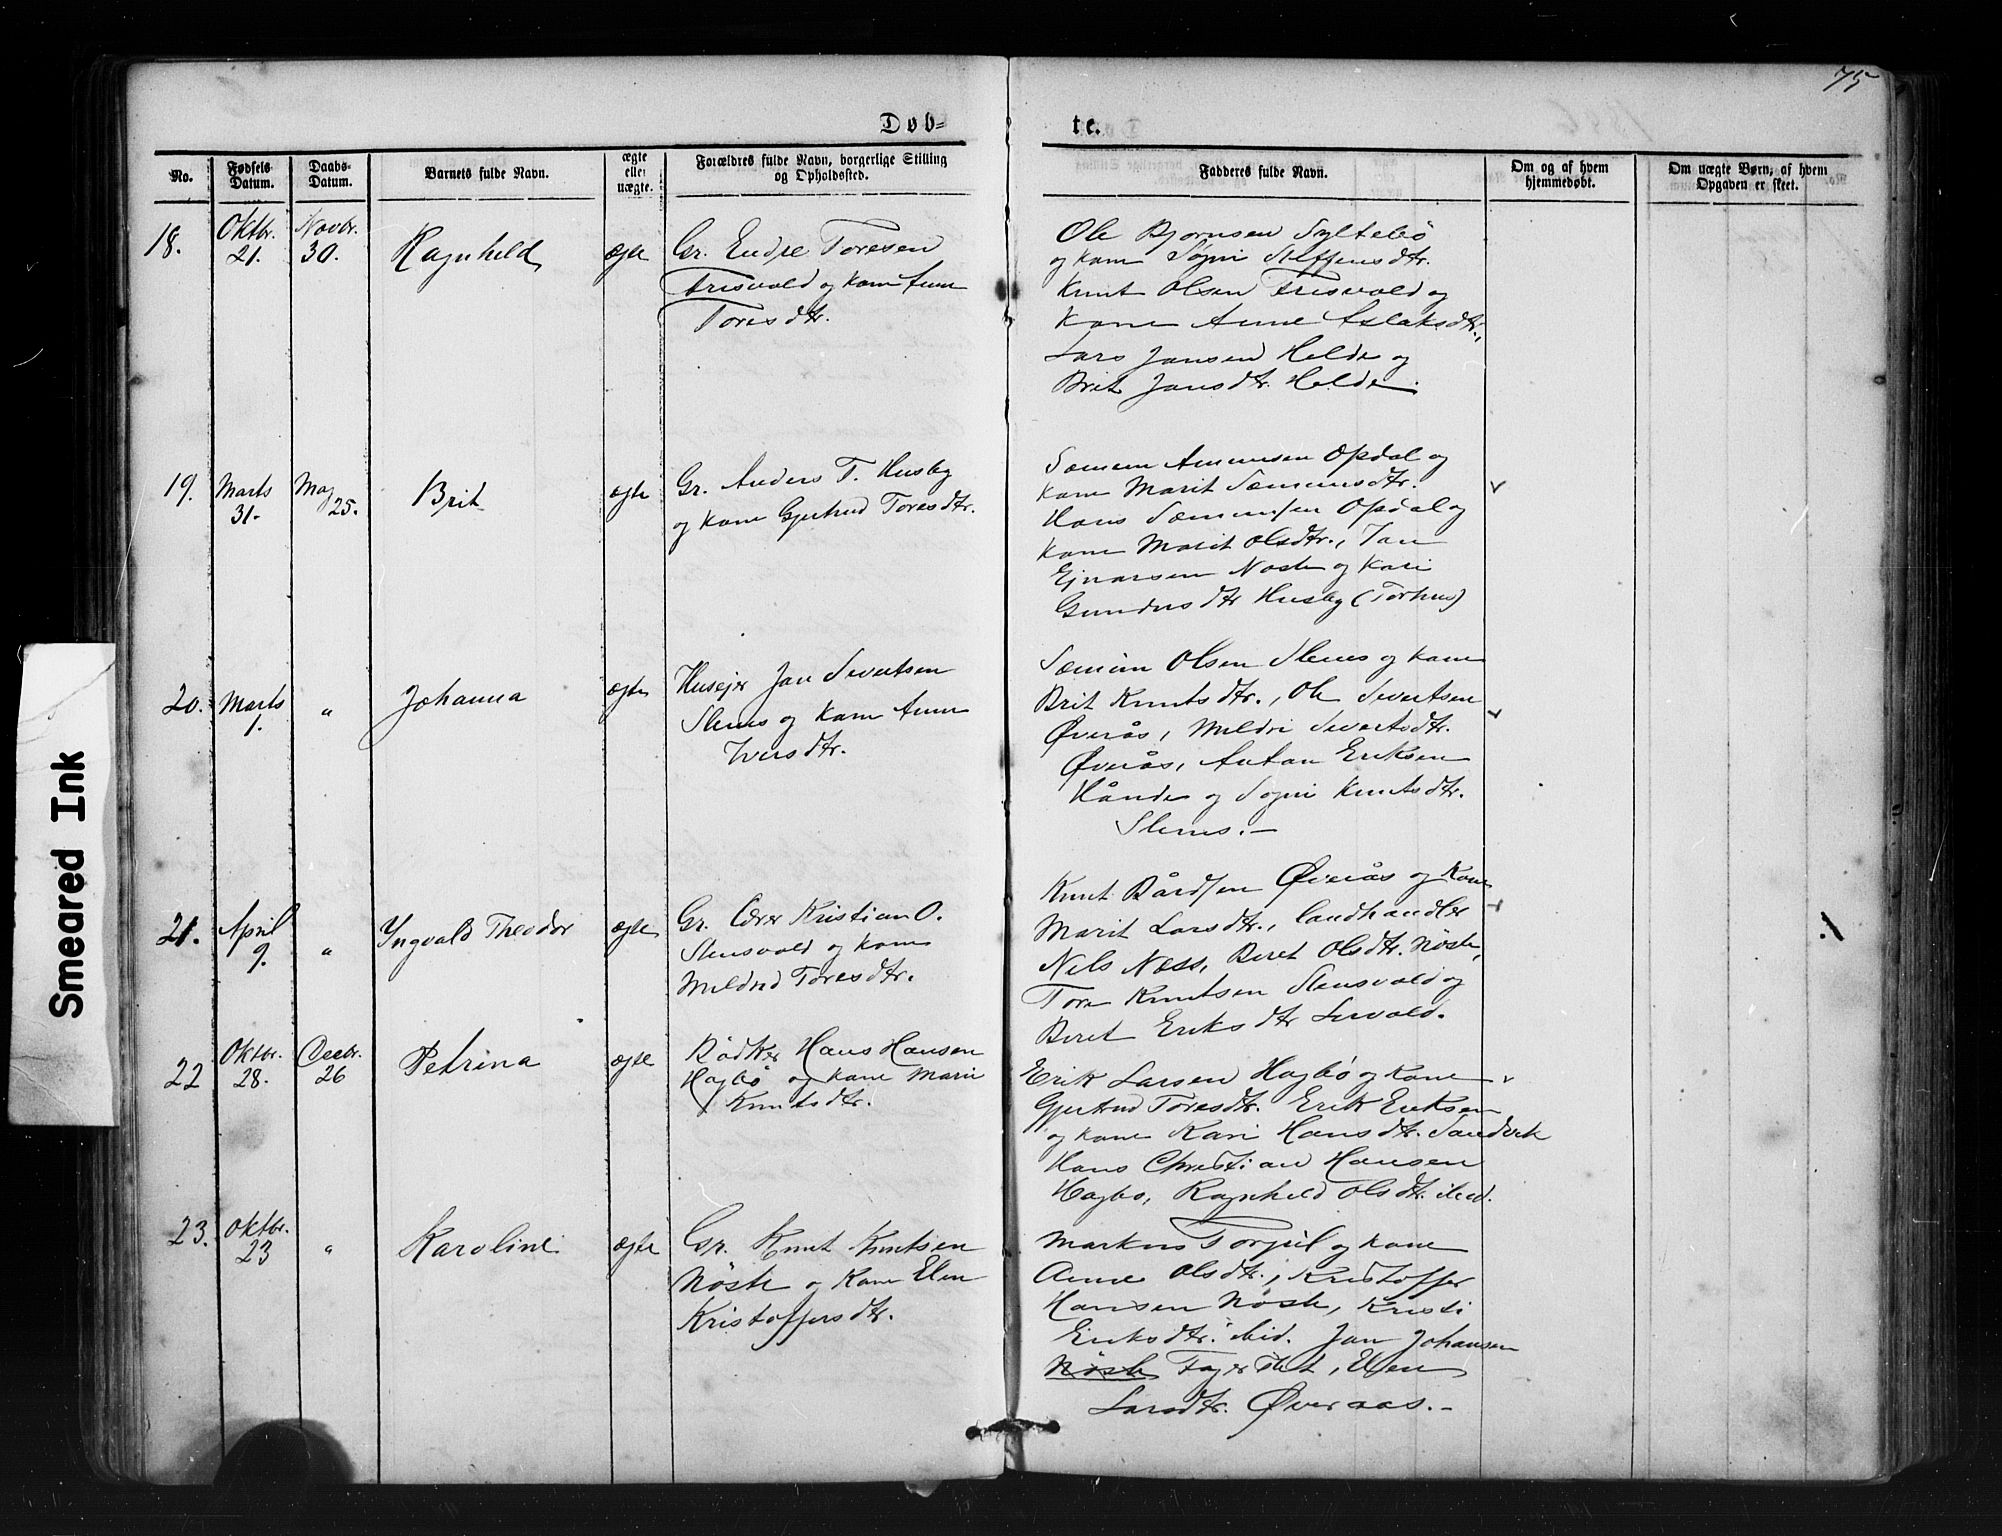 75
Døb=
te.
No.
Fødsels Datum.
Daabs- Datum.
Barnets fulde Navn.
ægte eller uægte.
Forældres fulde Navn, borgerlige Stilling og Opholdssted.
Fadderes fulde Navn.
Om og af hvem hjemmedøbt.
Om uægte Børn, af hvem Opgaven er skeet.
18.
Oktbr. 21.
Novbr. 30.
Ragnhild
ægte
Gr. Endre Toresen
Frisvold og kone Anne
Toresdtr.
Ole Bjørnsen Syltebø
og kone Søgni Steffensdtr.
Knut Olsen Frisvold og
kone Anne Aslaksdtr.,
Lars Jansen Helde og
Brit Jansdtr. Helde.
19.
Marts 31.
Maj 25.
Brit
ægte
Gr. Anders T. Husby
og kone Gjertrud Toresdtr.
Sæmun Amunsen Opdal og
kone Marit Sæmunsdtr.
Hans Sæmunsen Opdal og
kone Marit Olsdtr., Jan
Ejnarsen Nøste og Kari
Gundersdtr Husby (Torhus)
20.
Marts 1.
"
Johanna
ægte
Husejer Jan Sivertsen
Slems og kone Anne
Iversdtr.
Sæmun Olsen Slems og kone
Brit Knutsdtr., Ole Sivertsen
Øverås, Mildri Sivertsdtr.
Øverås, Anton Eriksen
Hånde og Søgni Knutsdtr.
Slems.—
21.
April 9.
"
Yngvald Theodor
ægte
Gr. Lærer Kristian O.
Stensvold og kone
Mildrid Toresdtr.
Knut Bårdsen Øverås og kone
Marit Larsdtr., Landhandler
Nils Næss, Beret Olsdtr. Nøste,
Tore Knutsen Stensvold og
Beret Eriksdtr
22
Oktbr. 28.
Decbr. 26
Petrina
ægte
Bødker Hans Hansen
Hagbø og kone Marie
Knutsdtr.
Erik Larsen Hagbø og kone
Gjertrud Toresdtr. Erik Eriksen
og kone Kari Hansdtr. Sandvik
Hans Christian Hansen
Hagbø, Ragnhild Olsdtr. ibid.
23.
Oktbr. 23
"
Karoline
ægte
Gr. Knut Knutsen
Nøste og kone Elen
Kristoffersdtr.
Markus Torjul og kone
Anne Olsdtr., Kristoffer
Hansen Nøste, Kristi
Eriksdtr. ibid. Jan Johansen
Nøste Fagerslet, Elen
Larsdtr. Øveraas.—
Smeared Ink